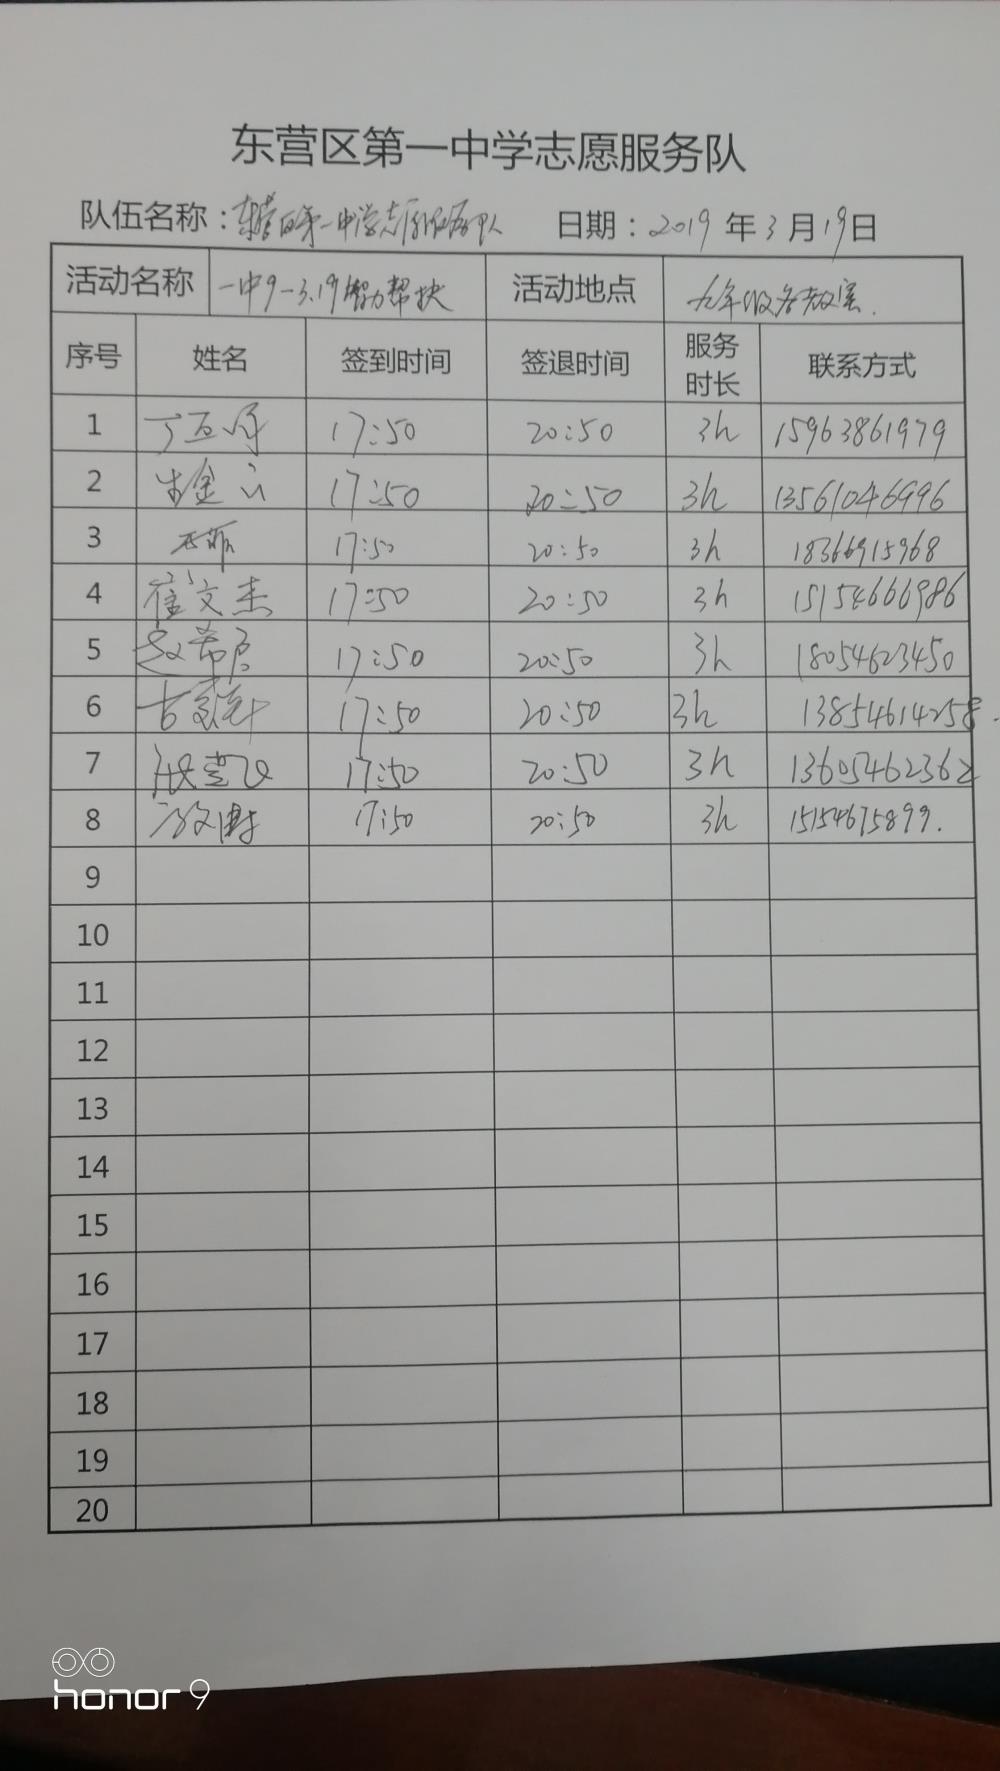 东营区第一中学志愿服务队
队伍名称：东营区第一中学志愿服务队 日期：2019年3月19日
活动名称 一中9-3.19智力帮扶 活动地点 九年级各教室.
序号 姓名 签到时间 签退时间 服务时长 联系方式
1 17:50 20:50 3h 15963861979
2 17:50 20:50 3h 13561046996
3 17:50 20:50 3h 18366915968
4 崔文杰 17:50 20:50 3h 15154666986
5 赵希启 17:50 20:50 3h 18054623450
6 17:50 20:50 3h 13854614258.
7 17:50 20:50 3h 13605462362
8 17:50 20:50 3h 15154675899.
9
10
11
12
13
14
15
16
17
18
19
20
honor 9